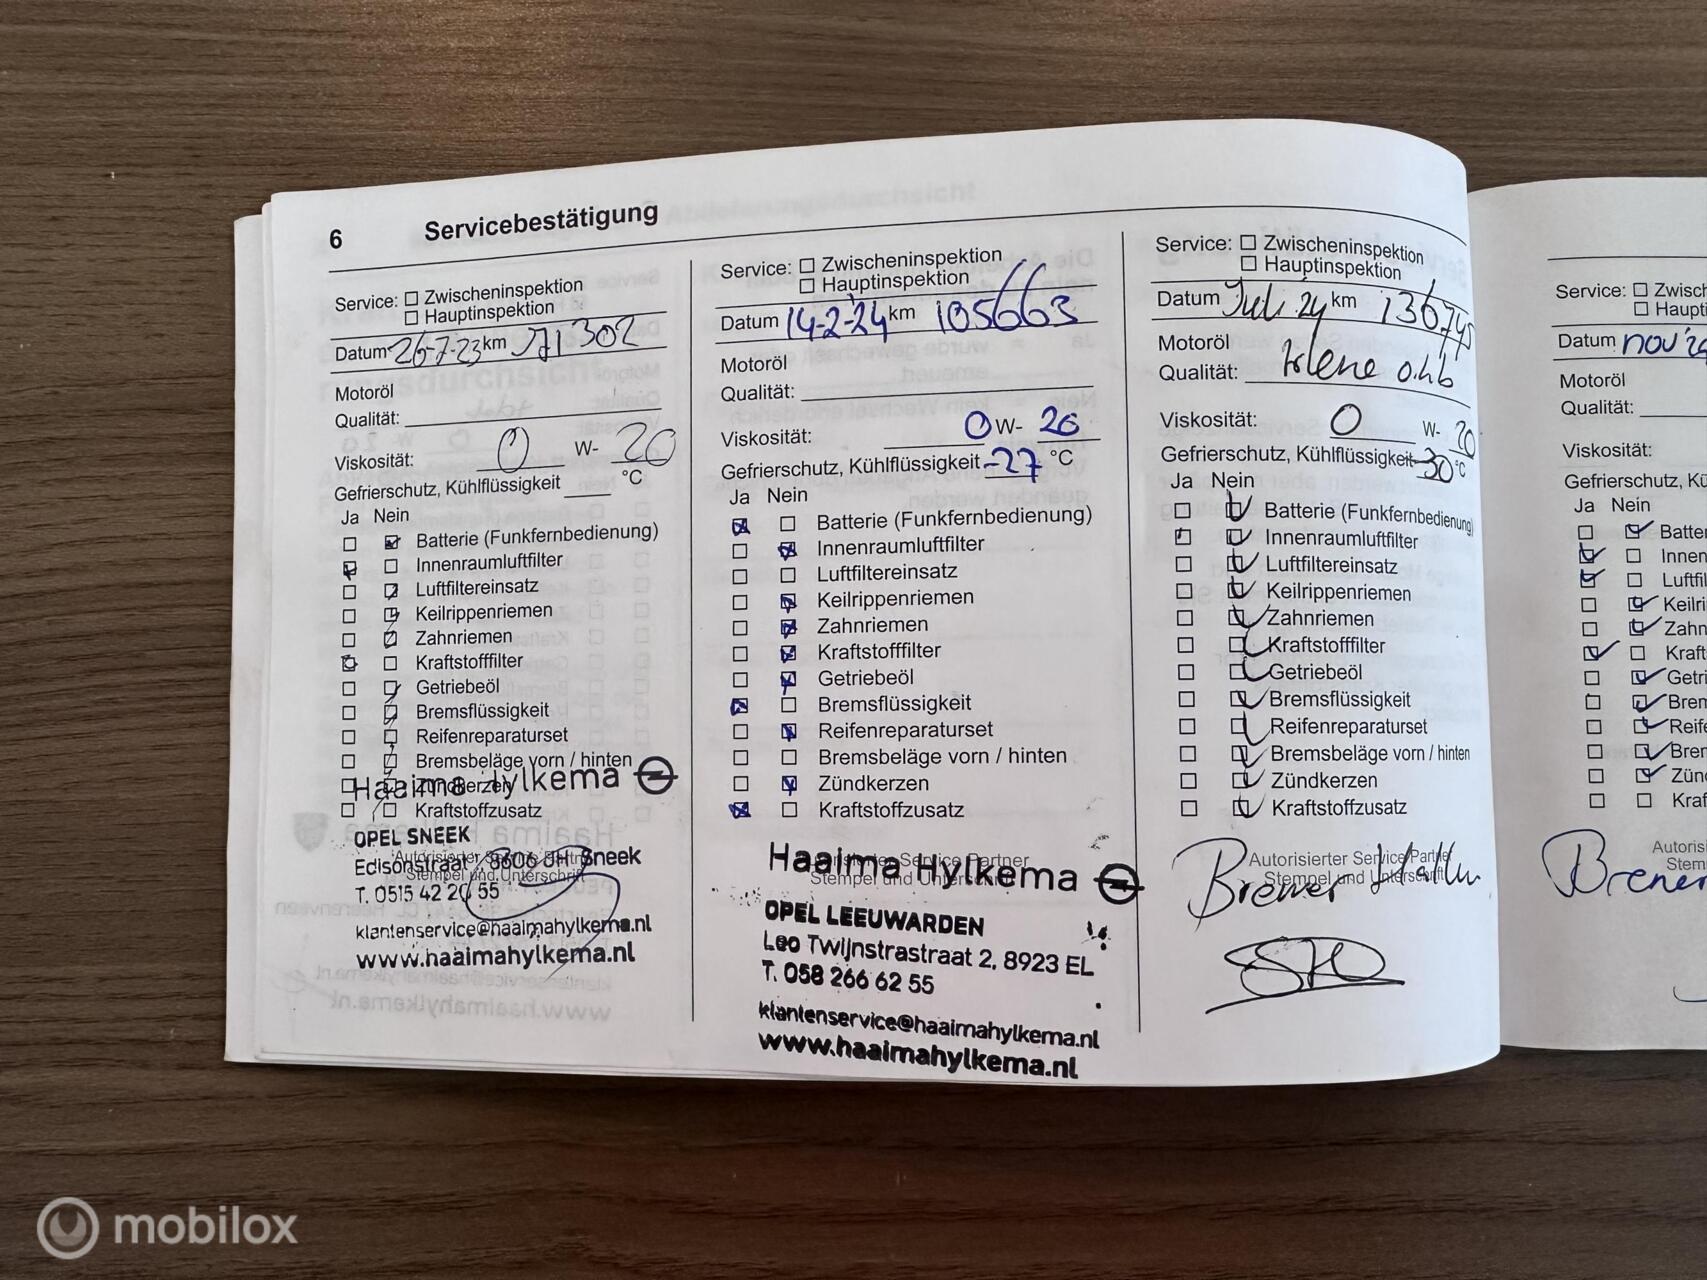 6 Servicebestätigung
Service: Zwischeninspektion
Hauptinspektion
Datum 26-7-23 km 71302
Motoröl
Qualität:
Viskosität: 0 W- 20
Gefrierschutz, Kühlflüssigkeit °C
Ja Nein
Batterie (Funkfernbedienung)
Innenraumluftfilter
Luftfiltereinsatz
Keilrippenriemen
Zahnriemen
Kraftstofffilter
Getriebeöl
Bremsflüssigkeit
Reifenreparaturset
Bremsbeläge vorn / hinten
Zündkerzen
Kraftstoffzusatz
Haaima Hylkema
OPEL SNEEK
Autorisierter Service Partner
Stempel und Unterschrift
Edisonstraat Sneek
T. 0515 42 20 55
klantenservice@haaimahylkema.nl
www.haaimahylkema.nl
Service: Zwischeninspektion
Hauptinspektion
Datum 14-2-24 km 105663
Motoröl
Qualität:
Viskosität: 0 W- 20
Gefrierschutz, Kühlflüssigkeit -27 °C
Ja Nein
Batterie (Funkfernbedienung)
Innenraumluftfilter
Luftfiltereinsatz
Keilrippenriemen
Zahnriemen
Kraftstofffilter
Getriebeöl
Bremsflüssigkeit
Reifenreparaturset
Bremsbeläge vorn / hinten
Zündkerzen
Kraftstoffzusatz
Autorisierter Service Partner
Stempel und Unterschrift
Haaima Hylkema
OPEL LEEUWARDEN
Leo Twijnstrastraat 2, 8923 EL
T. 058 266 62 55
klantenservice@haaimahylkema.nl
www.haaimahylkema.nl
Service: Zwischeninspektion
Hauptinspektion
Datum Juli 24 km 136745
Motoröl
Qualität:
Viskosität: 0 W- 20
Gefrierschutz, Kühlflüssigkeit -30 °C
Ja Nein
Batterie (Funkfernbedienung)
Innenraumluftfilter
Luftfiltereinsatz
Keilrippenriemen
Zahnriemen
Kraftstofffilter
Getriebeöl
Bremsflüssigkeit
Reifenreparaturset
Bremsbeläge vorn / hinten
Zündkerzen
Kraftstoffzusatz
Autorisierter Service Partner
Stempel und Unterschrift
Service: Zwisch
Haupti
Datum nov
Motoröl
Qualität:
Viskosität:
Gefrierschutz, Kü
Ja Nein
Batter
Innen
Luftfil
Keilri
Zahn
Kraft
Getri
Brem
Reife
Brem
Zünd
Kraf
Autoris
Stem
mobilox